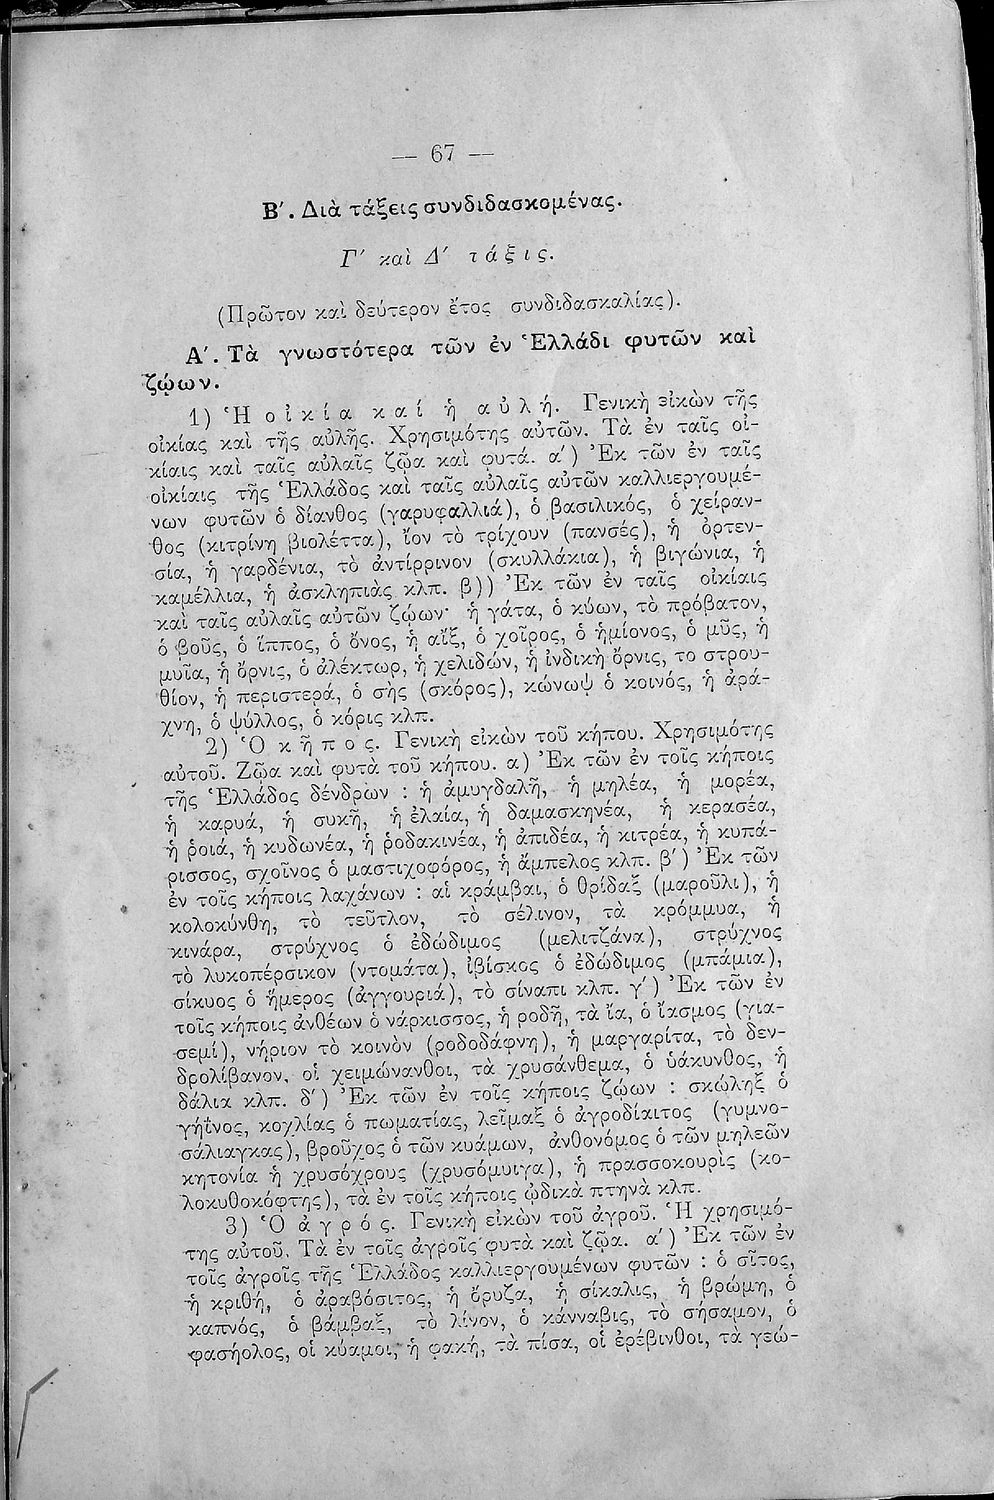 — 67 —
Β'. Διὰ τάξεις συνδιδασκομένας.
Γ' καὶ Δ' τάξις.
(Πρῶτον καὶ δεύτερον ἔτος συνδιδασκαλίας).
Α'. Τὰ γνωστότερα τῶν ἐν Ἑλλάδι φυτῶν καὶ
ζῴων.
1) Ἡ οἰκία καί ἡ αὐλή. Γενικὴ εἰκὼν τῆς
οἰκίας καὶ τῆς αὐλῆς. Χρησιμότης αὐτῶν. Τὰ ἐν ταῖς οἰ-
κίαις καὶ ταῖς αὐλαῖς ζῷα καὶ φυτά. α') Ἐκ τῶν ἐν ταῖς
οἰκίαις τῆς Ἑλλάδος καὶ ταῖς αὐλαῖς αὐτῶν καλλιεργουμέ-
νων φυτῶν ὁ δίανθος (γαρυφαλλιά), ὁ βασιλικός, ὁ χείραν-
θος (κιτρίνη βιολέττα), ἴον τὸ τρίχουν (πανσές), ἡ ὀρτεν-
σία, ἡ γαρδένια, τὸ ἀντίρρινον (σκυλλάκια), ἡ βιγώνια, ἡ
καμέλλια, ἡ ἀσκληπιὰς κλπ. β)) Ἐκ τῶν ἐν ταῖς οἰκίαις
καὶ ταῖς αὐλαῖς αὐτῶν ζῴων· ἡ γάτα, ὁ κύων, τὸ πρόβατον,
ὁ βοῦς, ὁ ἵππος, ὁ ὄνος, ἡ αἴξ, ὁ χοῖρος, ὁ ἡμίονος, ὁ μῦς, ἡ
μυῖα, ἡ ὄρνις, ὁ ἀλέκτωρ, ἡ χελιδών, ἡ ἰνδικὴ ὄρνις, το στρου-
θίον, ἡ περιστερά, ὁ σὴς (σκόρος), κώνωψ ὁ κοινός, ἡ ἀρά-
χνη, ὁ ψύλλος, ὁ κόρις κλπ.
2) Ὁ κῆπος. Γενικὴ εἰκὼν τοῦ κήπου. Χρησιμότης
αὐτοῦ. Ζῷα καὶ φυτὰ τοῦ κήπου. α) Ἐκ τῶν ἐν τοῖς κήποις
τῆς Ἑλλάδος δένδρων : ἡ ἀμυγδαλῆ, ἡ μηλέα, ἡ μορέα,
ἡ καρυά, ἡ συκῆ, ἡ ἐλαία, ἡ δαμασκηνέα, ἡ κερασέα,
ἡ ῥοιά, ἡ κυδωνέα, ἡ ῥοδακινέα, ἡ ἀπιδέα, ἡ κιτρέα, ἡ κυπά-
ρισσος, σχοῖνος ὁ μαστιχοφόρος, ἡ ἄμπελος κλπ. β') Ἐκ τῶν
ἐν τοῖς κήποις λαχάνων : αἱ κράμβαι, ὁ θρίδαξ (μαροῦλι), ἡ
κολοκύνθη, τὸ τεῦτλον, τὸ σέλινον, τὰ κρόμμυα, ἡ
κινάρα, στρύχνος ὁ ἐδώδιμος (μελιτζάνα), στρύχνος
τὸ λυκοπέρσικον (ντομάτα), ἰβίσκος ὁ ἐδώδιμος (μπάμια),
σίκυος ὁ ἥμερος (ἀγγουριά), τὸ σίναπι κλπ. γ') Ἐκ τῶν ἐν
τοῖς κήποις ἀνθέων ὁ νάρκισσος, ἡ ροδῆ, τὰ ἴα, ὁ ἴασμος (για-
σεμί), νήριον τὸ κοινὸν (ροδοδάφνη), ἡ μαργαρίτα, τὸ δεν-
δρολίβανον, οἱ χειμώνανθοι, τὰ χρυσάνθεμα, ὁ ὑάκυνθος, ἡ
δάλια κλπ. δ') Ἐκ τῶν ἐν τοῖς κήποις ζῴων : σκώληξ ὁ
γήϊνος, κοχλίας ὁ πωματίας, λεῖμαξ ὁ ἀγροδίαιτος (γυμνο-
σάλιαγκας), βροῦχος ὁ τῶν κυάμων, ἀνθονόμος ὁ τῶν μηλεῶν
κητονία ἡ χρυσόχρους (χρυσόμυιγα), ἡ πρασσοκουρὶς (κο-
λοκυθοκόφτης), τὰ ἐν τοῖς κήποις ᾠδικὰ πτηνὰ κλπ.
3) Ὁ ἀγρός. Γενικὴ εἰκὼν τοῦ ἀγροῦ. Ἡ χρησιμό-
της αὐτοῦ. Τὰ ἐν τοῖς ἀγροῖς φυτὰ καὶ ζῷα. α') Ἐκ τῶν ἐν
τοῖς ἀγροῖς τῆς Ἑλλάδος καλλιεργουμένων φυτῶν : ὁ σῖτος,
ἡ κριθή, ὁ ἀραβόσιτος, ἡ ὄρυζα, ἡ σίκαλις, ἡ βρώμη, ὁ
καπνός, ὁ βάμβαξ, τὸ λίνον, ὁ κάνναβις, τὸ σήσαμον, ὁ
φασήολος, οἱ κύαμοι, ἡ φακή, τὰ πίσα, οἱ ἐρέβινθοι, τὰ γεώ-